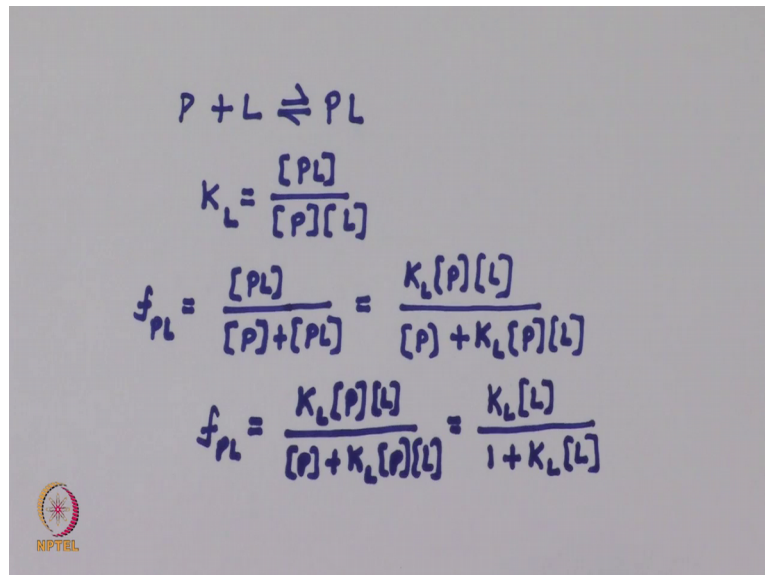 P + L ⇌ PL
K_L = [PL] / [P][L]
f_PL = [PL] / [P]+[PL] = K_L[P][L] / [P] + K_L[P][L]
f_PL = K_L[P][L] / [P] + K_L[P][L] = K_L[L] / 1 + K_L[L]
NPTEL